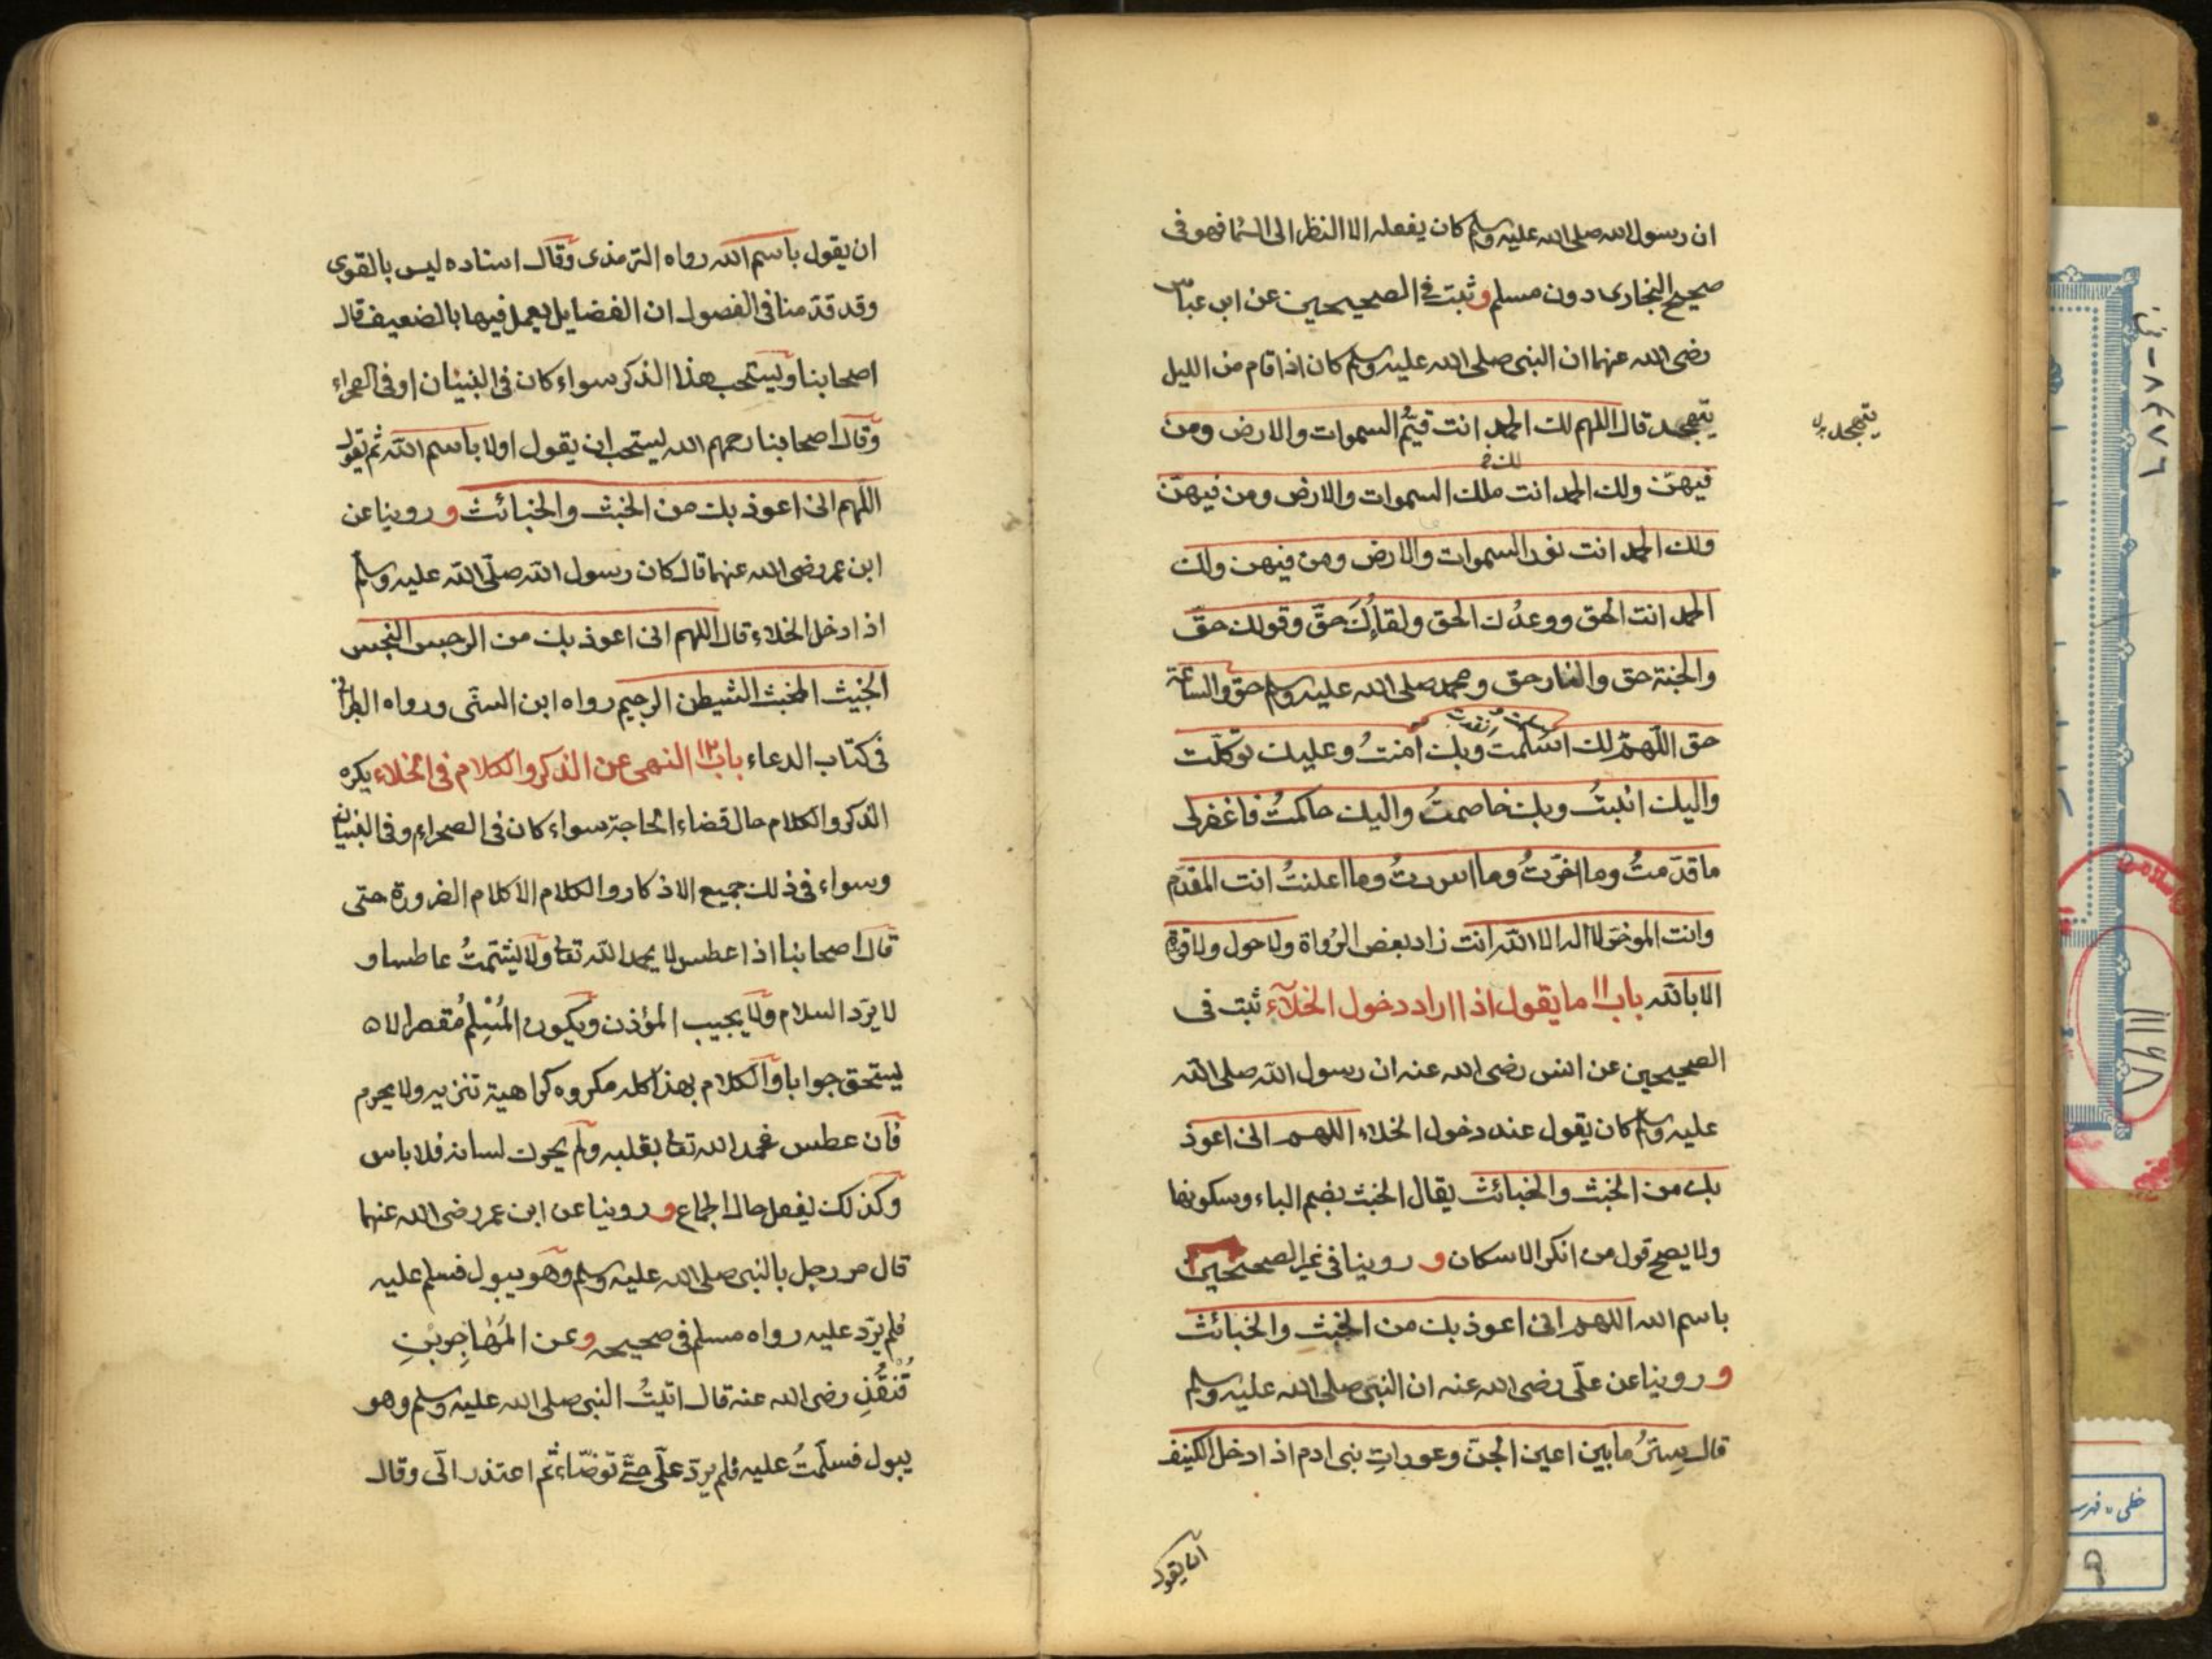 ان رسول الله صلى الله عليه وسلم كان يفعله الا النظر الى السما فهو فى
صحيح البخارى دون مسلم وثبت فى الصحيحين عن ابن عباس
رضى الله عنهما ان النبى صلى الله عليه وسلم كان اذا قام من الليل
يتهجد قال اللهم لك الحمد انت قيّم السموات والارض ومن
يتهجد
فيهنّ ولك الحمد انت ملك السموات والارض ومن فيهنّ
ولك الحمد انت نور السموات والارض ومن فيهن ولك
الحمد انت الحق ووعدُك الحق ولقاؤك حقّ وقولك حقّ
والجنة حق والنار حق ومحمد صلى الله عليه وسلم حق والساعة
حق اللّهمّ لك اسلمتُ وبك امنتُ وعليك توكلّت
واليك انبتُ وبك خاصمتُ واليك حاكمتُ فاغفرلى
ما قدّمتُ وما اخّرتُ وما اسررتُ وما اعلنتُ انت المقدّم
وانت الموخّر لا اله الا الله انت زاد بعض الرُواة ولا حول ولا قوة
الا بالله باب ١١ ما يقول اذا اراد دخول الخلآء ثبت فى
الصحيحين عن انس رضى الله عنه ان رسول الله صلى الله
عليه وسلم كان يقول عند دخول الخلاء اللهم انى اعوذ
بك من الخبث والخبائث يقال الخبث بضم الباء وسكونها
ولا يصح قول من انكر الاسكان و روينا فى غير الصحيحين
باسم الله اللهم انى اعوذ بك من الخبث والخبائث
و روينا عن علّى رضى الله عنه ان النبّى صلى الله عليه وسلم
قال سِترُ ما بين اعين الجنّ وعوراتِ بنى ادم اذا دخل الكنيف
ان يقول
ان يقول باسم الله رواه الترمذى وقال اسناده ليس بالقوى
وقد قدّمنا فى الفصول ان الفضايل يعمل فيها بالضعيف قال
اصحابنا ويستحب هذا الذكر سواء كان فى البنيان او فى الصحراء
وقال اصحابنا رحمهم الله يستحب ان يقول اولا باسم الله ثم يقول
اللّهم انى اعوذ بك من الخبث والخبائث و روينا عن
ابن عمر رضى الله عنهما قال كان رسول الله صلّى الله عليه وسلّم
اذا دخل الخلاء قال اللهم انى اعوذ بك من الرجس النجس
الخبيث المخبث الشيطن الرجيم رواه ابن السنّى ورواه الطبرانى
فى كتاب الدعاء باب ١٢ النهى عن الذكر والكلام فى الخلاء يكره
الذكر والكلام حال قضاء الحاجة سواء كان فى الصحراء وفى البنيان
وسواء فى ذلك جميع الاذكار والكلام الا كلام الضرورة حتى
قال اصحابنا اذا عطس لا يحمد الله تعا ولا يشمّتُ عاطسا و
لا يرّد السلام ولا يجيب المؤذن ويكون المُسِلمُ مُقصرا لا
يستحق جوابا والكلام بهذا كله مكروه كراهية تنزيه ولا يحرم
فان عطس فحمد الله تعا بقلبه ولم يحرك لسانه فلا باس
وكذلك يفعل حال الجماع و روينا عن ابن عمر رضى الله عنهما
قال مر رجل بالنبى صلى الله عليه وسلم وهو يبول فسلم عليه
فلم يرّد عليه رواه مسلم فى صحيحه وعن المُهاجرِ بنِ
قُنْقُذِ رضى الله عنه قال اتيتُ النبى صلى الله عليه وسلم وهو
يبول فسلّمتُ عليه فلم يردّ علّى حتّى توضّاء ثم اعتذر الّى وقال